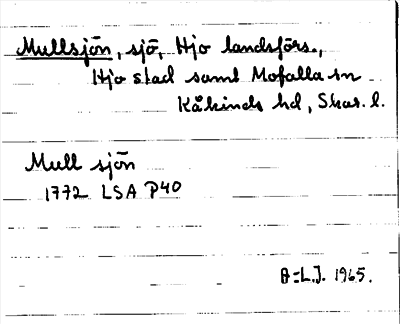 Mullsjön, sjö, Hjo landsförs.,
Hjo stad samt Mofalla sn
Kåkinds hd, Skar. l.
Mull sjön
1772 LSA P40
B:L.J. 1965.